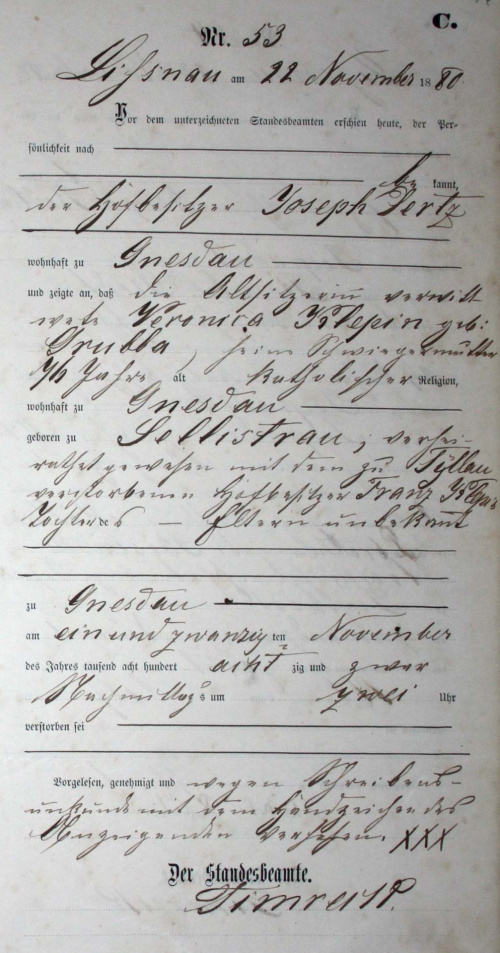 C.
Nr. 53
Lissnau am 22 November 1880
Vor dem unterzeichneten Standesbeamten erschien heute, der Per-
sönlichkeit nach
be kannt,
der Hofbesitzer Joseph
wohnhaft zu Gnesdau
und zeigte an, daß die Altsitzerin verwitt
wete Veronica Klepin geb:
Grubba, seine Schwiegermutter
Jahre alt katholischer Religion,
wohnhaft zu Gnesdau
geboren zu Sellistrau, verhei-
rathet gewesen mit dem zu Tyllau
verstorbenen Hofbesitzer Franz
Tochter des — Eltern unbekant
zu Gnesdau
am ein und zwanzig ten November
des Jahres tausend acht hundert acht zig und zwar
Nachmittags um zwei Uhr
verstorben sei
Vorgelesen, genehmigt und wegen Schreibens-
unkunde mit dem Handzeichen des
Anzeigenden versehen. XXX
Der Standesbeamte.